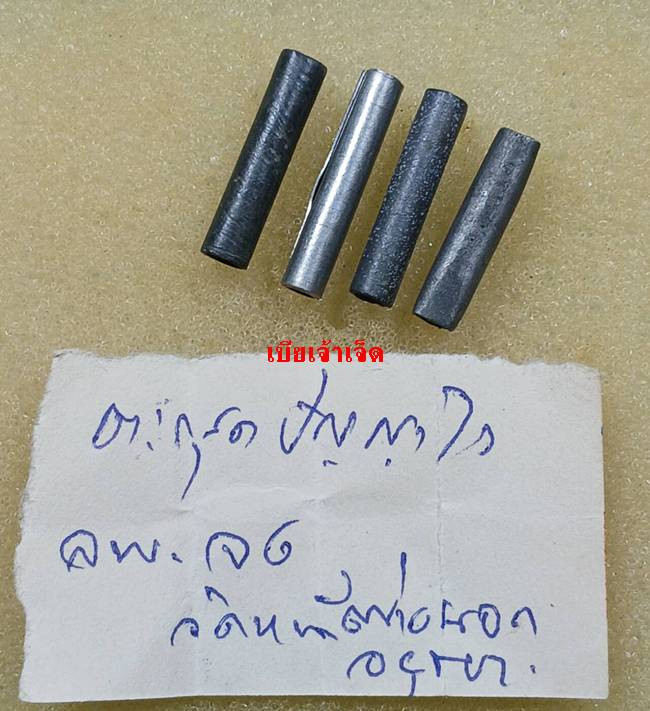 เบียเจ้าเจ็ด
ตะกรุด ปัญญาไว
ลพ. จง
วัดหน้าต่างนอก
อยุธยา.